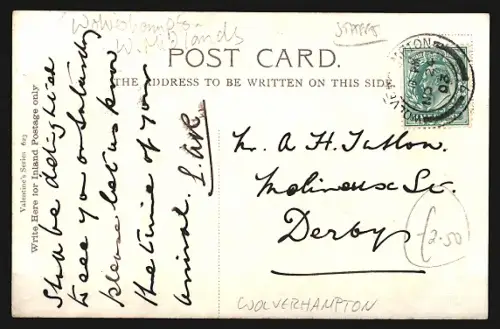 Wolverhampton
W. Midlands
STAFFS
POST CARD.
THE ADDRESS TO BE WRITTEN ON THIS SIDE
Valentine's Series 623
Write Here for Inland Postage only
Shall be delighted
to see you on Saturday
please let us know
the time of your
arrival. L.AR
Mr. A H. Tutton.
Molineux St.
Derby
£2.50
WOLVERHAMPTON